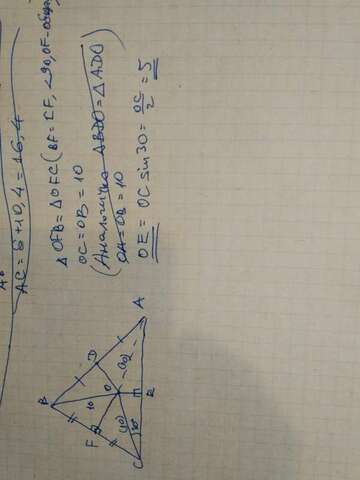 AC = 6 + 10,4 = 16,4
Δ OFB = Δ OFC ( BF = CF, ∠90, OF - общая)
OC = OB = 10
(Аналогично Δ BDO = Δ ADO
OA = OB = 10
OE = OC sin 30 = OC/2 = 5
B
F
10
D
O
(10)
(10)
C
30
E
A